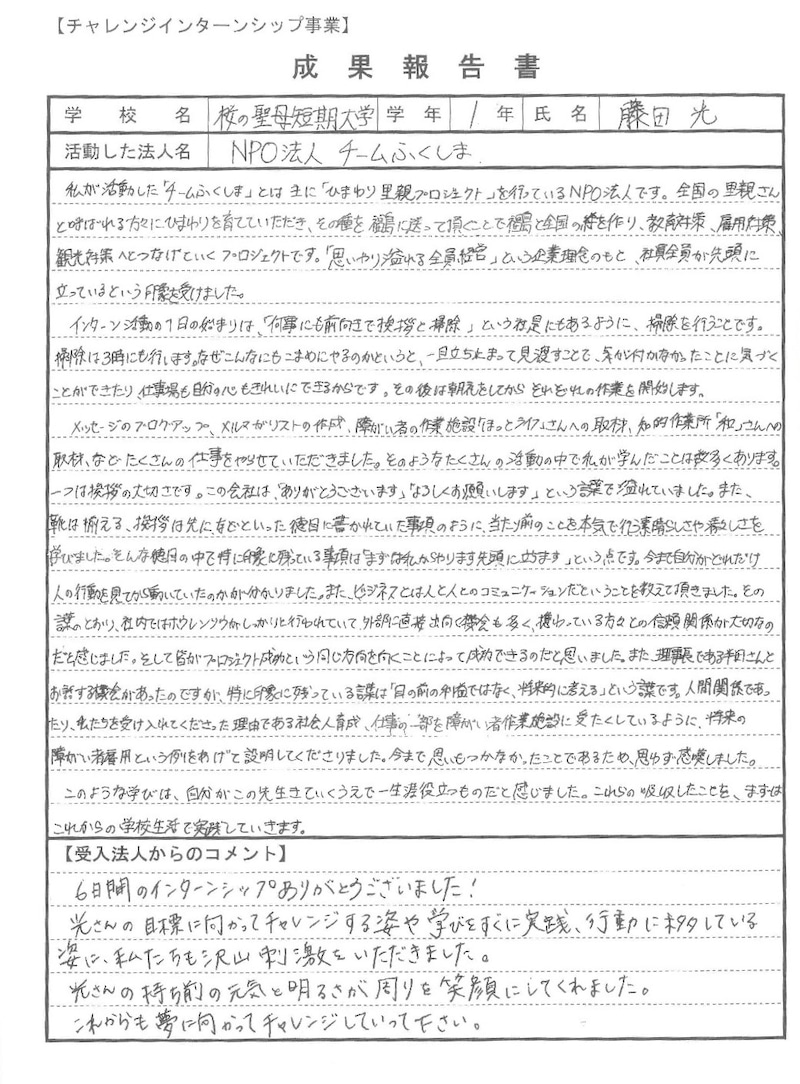 【チャレンジインターンシップ事業】
成果報告書
学校名 桜の聖母短期大学 学年 1年 氏名 藤田 光
活動した法人名 NPO法人 チームふくしま
私が活動した「チームふくしま」とは主に「ひまわり里親プロジェクト」を行っているNPO法人です。全国の里親さん
と呼ばれる方々にひまわりを育てていただき、その種を福島に送って頂くことで福島と全国の絆を作り、教育対策、雇用対策、
観光対策へとつなげていくプロジェクトです。「思いやり溢れる全員経営」という企業理念のもと、社員全員が先頭に
立っているという印象を受けました。
インターン活動の1日の始まりは、「何事にも前向きで挨拶と掃除」という社是にもあるように、掃除を行うことです。
掃除は3時にも行います。なぜこんなにもこまめにやるのかというと、一旦立ち止まって見渡すことで、気が付かなかったことに気づく
ことができたり、仕事場も自分の心もきれいにできるからです。その後は朝礼をしてからそれぞれの作業を開始します。
メッセージのブログアップ、メルマガリストの作成、障がい者の作業施設「ほっとライフ」さんへの取材、知的作業所「和」さんへの
取材、などたくさんの仕事をやらせていただきました。そのようなたくさんの活動の中で私が学んだことは数多くあります。
一つは挨拶の大切さです。この会社は、「ありがとうございます」「よろしくお願いします」という言葉で溢れていました。また、
靴は揃える、挨拶は先になどといった徳目に書かれていた事項のように、当たり前のことを本気で行う素晴らしさや楽しさを
学びました。そんな徳目の中で特に印象に残っている事項は「まずは私からやります先頭に立ちます」という点です。今まで自分がどれだけ
人の行動を見てから動いていたのかが分かりました。また、ビジネスとは人と人とのコミュニケーションだということを教えて頂きました。その
言葉のとおり、社内ではホウレンソウがしっかりと行われていて、外部に直接出向く機会も多く、携わっている方々との信頼関係が大切なの
だと感じました。そして皆がプロジェクト成功という同じ方向を向くことによって成功できるのだと思いました。また理事長である半田さんと
お話する機会があったのですが、特に印象に残っている言葉は「目の前の利益ではなく、将来的に考える」という言葉です。人間関係であっ
たり、私たちを受け入れてくださった理由である社会人育成、仕事の一部を障がい者作業施設に受たくしているように、将来の
障がい者雇用という例をあげて説明してくださりました。今まで思いもつかなかったことであるため、思わず感嘆しました。
このような学びは、自分がこの先生きていくうえで一生涯役立つものだと感じました。これらの吸収したことを、まずは
これからの学校生活で実践していきます。
【受入法人からのコメント】
6日間のインターンシップありがとうございました！
光さんの目標に向かってチャレンジする姿や学びをすぐに実践、行動に移している
姿に、私たちも沢山刺激をいただきました。
光さんの持ち前の元気と明るさが周りを笑顔にしてくれました。
これからも夢に向かってチャレンジしていって下さい。